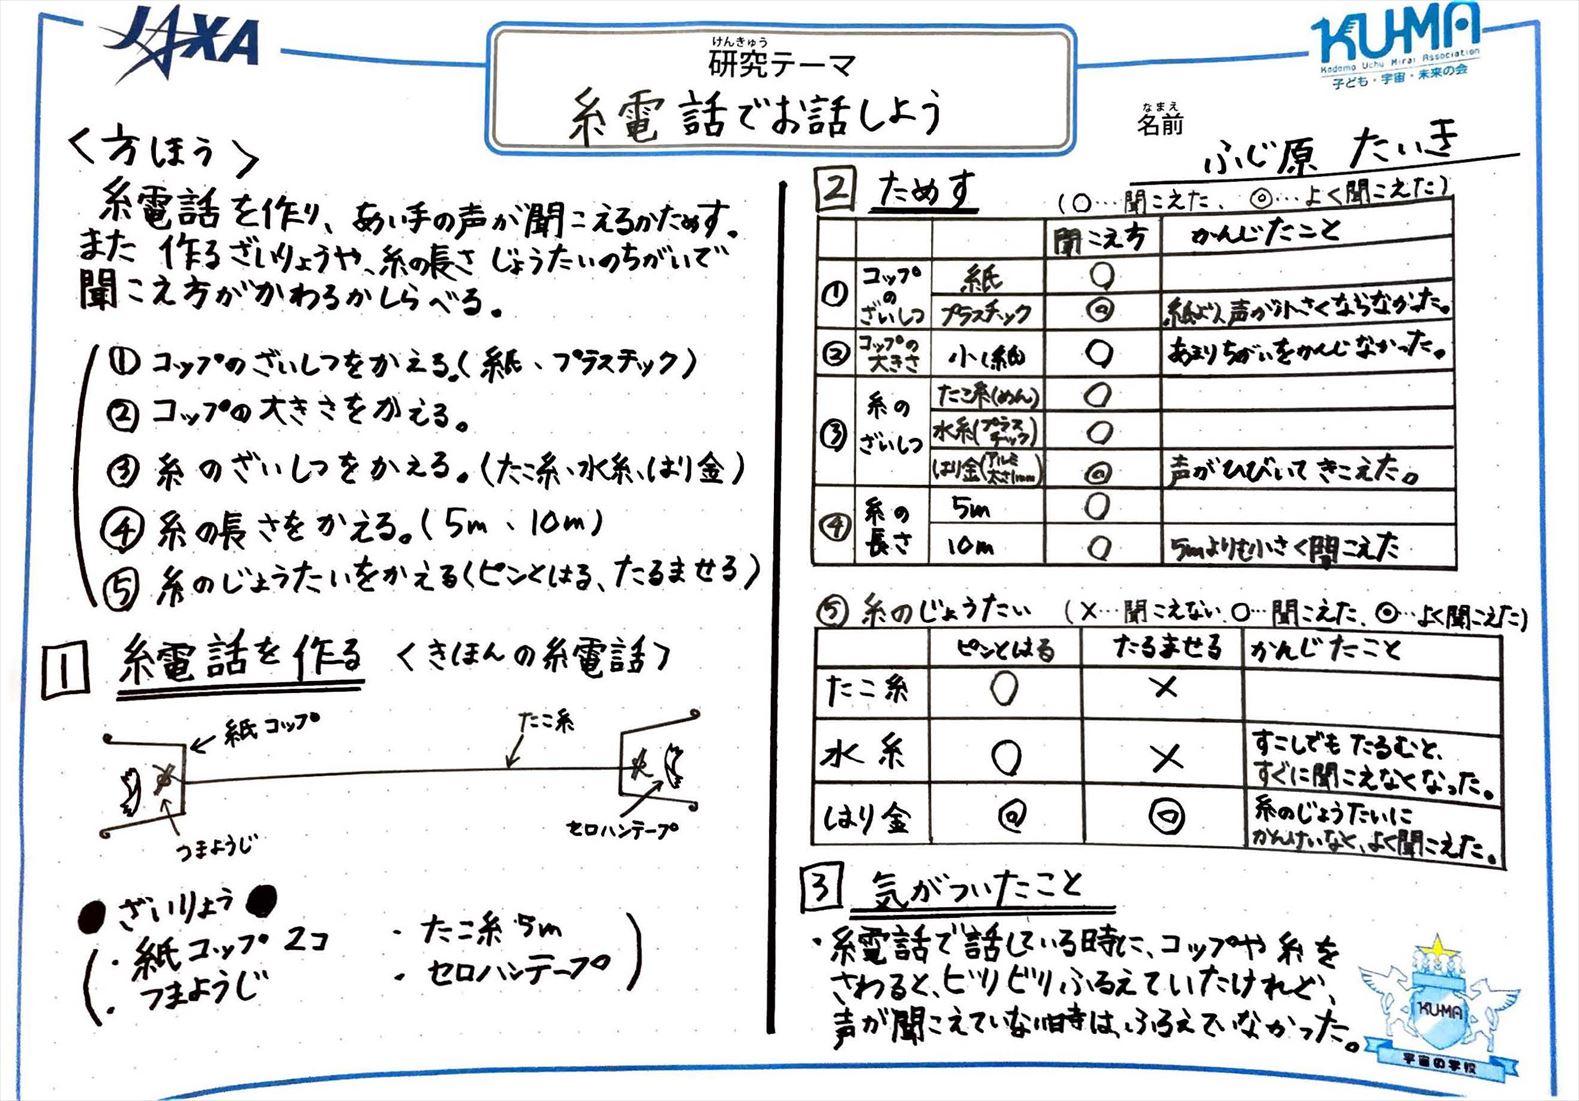 JAXA
けんきゅう
研究テーマ
糸電話でお話しよう
KU-MA
Kodomo Uchu Mirai Association
子ども・宇宙・未来の会
なまえ
名前
ふじ原 たいき
＜方ほう＞
糸電話を作り、あい手の声が聞こえるかためす。
また 作るざいりょうや、糸の長さ じょうたいのちがいで
聞こえ方がかわるかしらべる。
① コップのざいしつをかえる。(紙、プラスチック)
② コップの大きさをかえる。
③ 糸のざいしつをかえる。(たこ糸、水糸、はり金)
④ 糸の長さをかえる。(5m、10m)
⑤ 糸のじょうたいをかえる(ピンとはる、たるませる)
1 糸電話を作る ＜きほんの糸電話＞
紙コップ
たこ糸
つまようじ
セロハンテープ
●ざいりょう●
・紙コップ 2コ ・たこ糸 5m
・つまようじ ・セロハンテープ
2 ためす (○…聞こえた、◎…よく聞こえた)
聞こえ方 かんじたこと
① コップのざいしつ 紙 ○
プラスチック ◎ 紙より、声が小さくならなかった。
② コップの大きさ 小(紙) ○ あまりちがいをかんじなかった。
③ 糸のざいしつ たこ糸(めん) ○
水糸(プラスチック) ○
はり金(アルミ太さ1mm) ◎ 声がひびいてきこえた。
④ 糸の長さ 5m ○
10m ○ 5mよりも小さく聞こえた
⑤ 糸のじょうたい (×…聞こえない、○…聞こえた、◎…よく聞こえた)
ピンとはる たるませる かんじたこと
たこ糸 ○ ×
水糸 ○ × すこしでもたるむと、
すぐに聞こえなくなった。
はり金 ◎ ◎ 糸のじょうたいに
かんけいなく、よく聞こえた。
3 気がついたこと
・糸電話で話している時に、コップや糸を
さわると、ビリビリふるえていたけれど、
声が聞こえていない時は、ふるえていなかった。
KU-MA
宇宙の学校